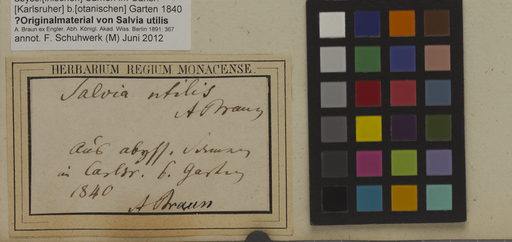 [Karlsruher] b.[otanischen] Garten 1840
?Originalmaterial von Salvia utilis
A. Braun ex Engler, Abh. Königl. Akad. Wiss. Berlin 1891: 367
annot. F. Schuhwerk (M) Juni 2012
HERBARIUM REGIUM MONACENSE.
Salvia utilis
A Braun
Aus abyss. Samen
in Carlsr. b. Garten
1840
A Braun